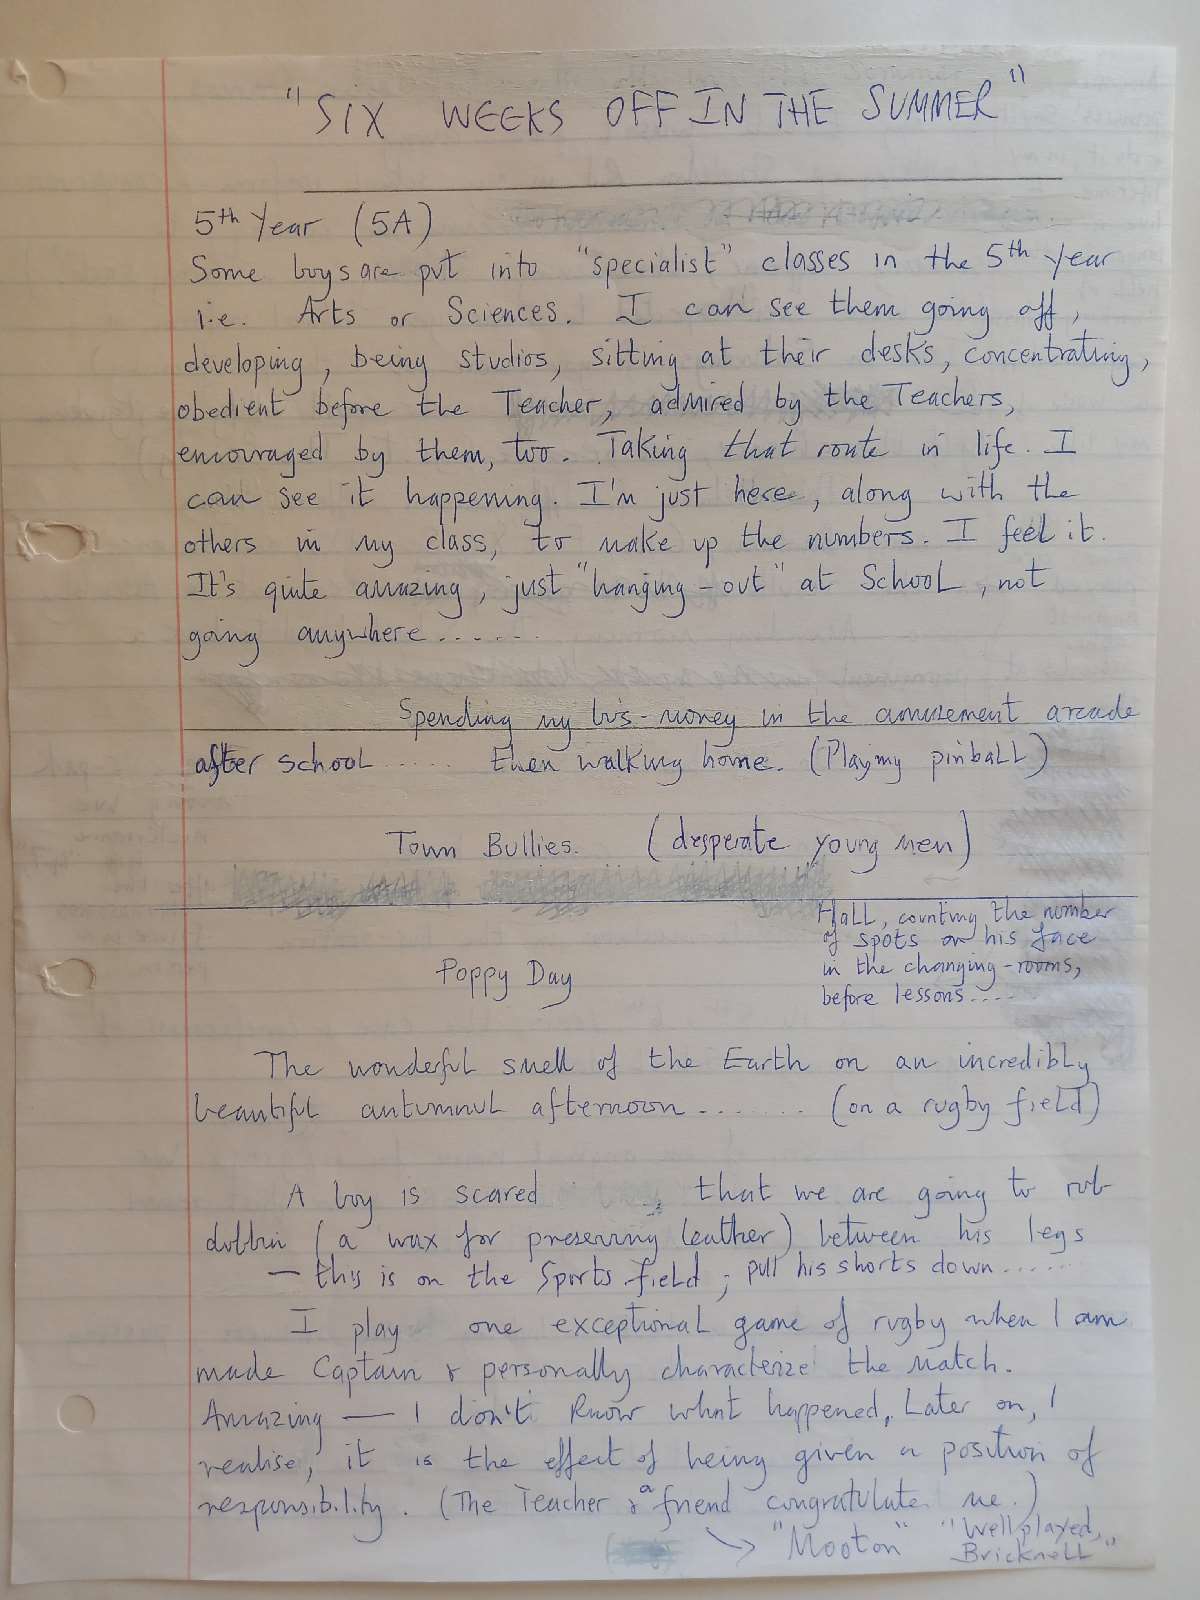 "SIX WEEKS OFF IN THE SUMMER"
5th Year (5A)
Some boys are put into "specialist" classes in the 5th year
i.e. Arts or Sciences. I can see them going off,
developing, being studios, sitting at their desks, concentrating,
obedient before the Teacher, admired by the Teachers,
encouraged by them, too. Taking that route in life. I
can see it happening. I'm just here, along with the
others in my class, to make up the numbers. I feel it.
It's quite amazing, just "hanging-out" at School, not
going anywhere......
Spending my bus-money in the amusement arcade
after school ..... then walking home. (Playing pinball)
Town Bullies. (desperate young men)
Hall, counting the number
of spots on his face
in the changing-rooms,
before lessons.....
Poppy Day
The wonderful smell of the Earth on an incredibly
beautiful autumnul afternoon ....... (on a rugby field)
A boy is scared that we are going to rub
dubbin (a wax for preserving leather) between his legs
— this is on the Sports field, pull his shorts down......
I play one exceptional game of rugby when I am
made Captain & personally characterize the match.
Amazing — I don't know what happened, Later on, I
realise, it is the effect of being given a position of
responsibility. (The Teacher & a friend congratulate me.)
"Mooton" "Well played,
Bricknell"